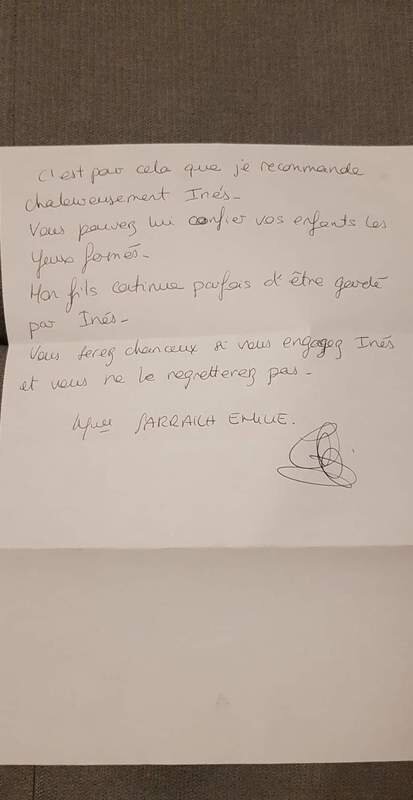 C'est par cela que je recommande
chaleureusement Inés_
Vous pouvez lui confier vos enfants les
yeux fermés_
Mon fils continue parfois d'être gardé
par Inés_
Vous serez chanceux si vous engagez Inés
et vous ne le regretterez pas_
SARRAICH EMILIE.